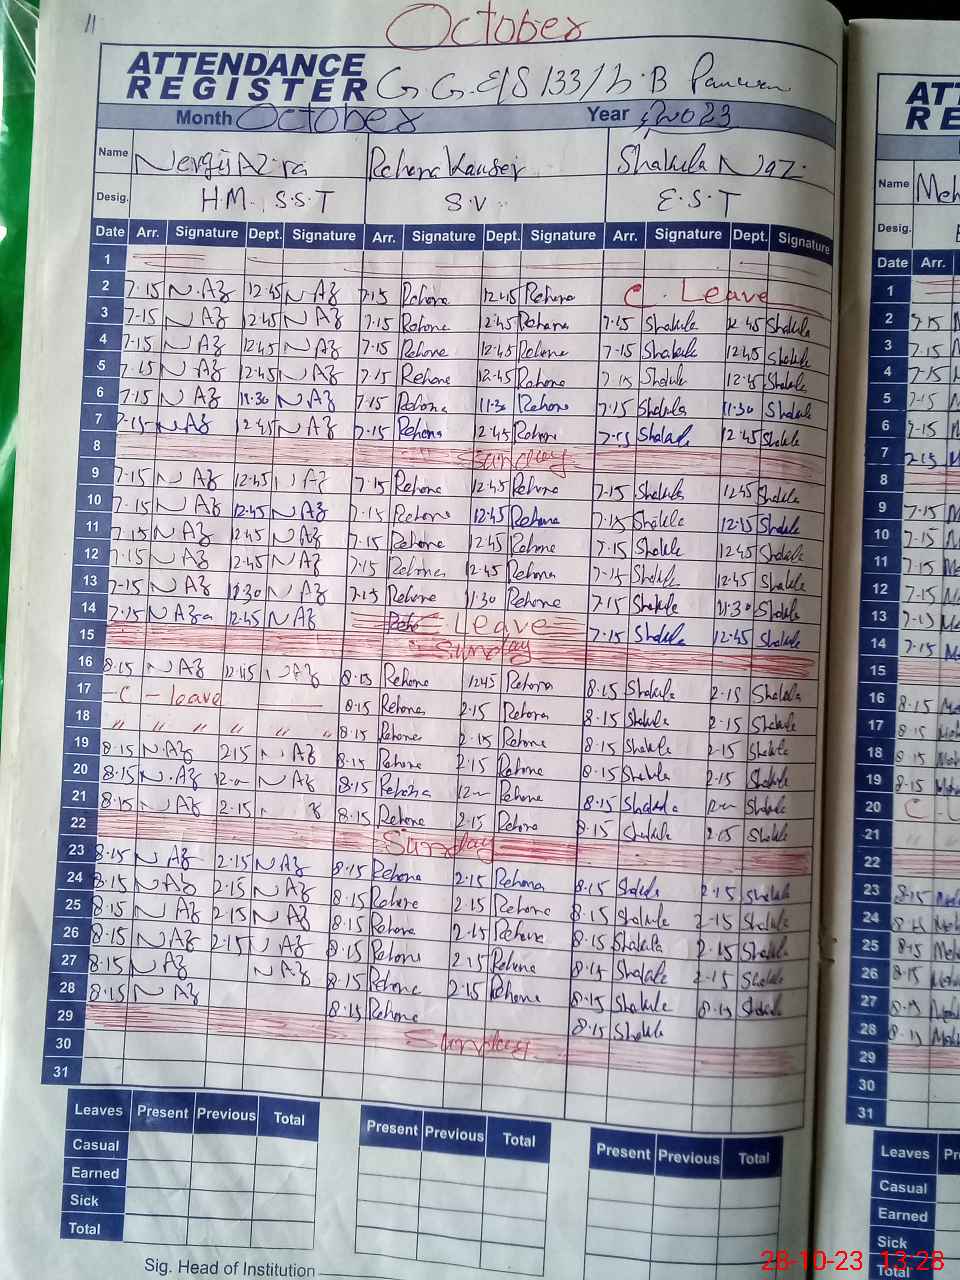 11
October
ATTENDANCE
REGISTER G G. E/S 133/
Month October Year 2023
Name Nergis Azira Rehana Kauser Shakila Naz
Desig. H.M. S.S.T S.V. E.S.T
Date Arr. Signature Dept. Signature Arr. Signature Dept. Signature Arr. Signature Dept. Signature
1
2 7.15 N.Az 12.45 N Az 7.15 Rehone 12.45 Rehone C. Leave
3 7.15 N Az 12.45 N Az 7.15 Rehone 12.45 Rehana 7.15 Shakila 12.45 Shakila
4 7.15 N Az 12.45 N Az 7.15 Rehone 12.45 Rehone 7.15 Shakale 12.45 Shakile
5 7.15 N Az 12.45 N Az 7.15 Rehone 12.45 Rehone 7.15 Shakile 12.45 Shakile
6 7.15 N Az 11.30 N Az 7.15 Rehona 11.30 Rehone 7.15 Shakila 11.30 Shakile
7 7.15 N Az 12.45 N Az 7.15 Rehona 12.45 Rehone 7.15 Shakile 12.45 Shakile
8 Sunday
9 7.15 N Az 12.45 N Az 7.15 Rehone 12.45 Rehone 7.15 Shakila 12.45 Shakile
10 7.15 N Az 12.45 N Az 7.15 Rehone 12.45 Rehone 7.15 Shakile 12.45 Shakile
11 7.15 N Az 12.45 N Az 7.15 Rehone 12.45 Rehone 7.15 Shakile 12.45 Shakile
12 7.15 N Az 12.45 N Az 7.15 Rehona 12.45 Rehona 7.15 Shakile 12.45 Shakile
13 7.15 N Az 11.30 N Az 7.15 Rehone 11.30 Rehone 7.15 Shakile 11.30 Shakila
14 7.15 N Aza 12.45 N Az C Leave 7.15 Shakila 12.45 Shakile
15 Sunday
16 8.15 N Az 12.45 N Az 8.15 Rehone 12.45 Rehona 8.15 Shakile 2.15 Shakila
17 C - leave 8.15 Rehona 2.15 Rehona 8.15 Shakile 2.15 Shakile
18 " " " " " 8.15 Rehone 2.15 Rehone 8.15 Shakile 2.15 Shakile
19 8.15 N.Az 2.15 N Az 8.15 Rehone 2.15 Rehone 8.15 Shakila 2.15 Shakile
20 8.15 N.Az N Az 8.15 Rehona Rehone 8.15 Shakila Shakile
21 8.15 N Az 2.15 8.15 Rehone 2.15 Rehona 8.15 Shakile 2.15 Shakile
22 Sunday
23 8.15 N Az 2.15 N Az 8.15 Rehone 2.15 Rehona 8.15 Shakila 2.15 Shakile
24 8.15 N Az 2.15 N Az 8.15 Rehone 2.15 Rehone 8.15 Shakile 2.15 Shakile
25 8.15 N Az 2.15 N Az 8.15 Rehone 2.15 Rehone 8.15 Shakila 2.15 Shakile
26 8.15 N Az 2.15 N Az 8.15 Rehona 2.15 Rehone 8.15 Shakile 2.15 Shakile
27 8.15 N Az N Az 8.15 Rehone 2.15 Rehone 8.15 Shakile 8.15 Shakile
28 8.15 N Az 8.15 Rehone 8.15 Shakile
29 Sunday
30
31
Leaves Present Previous Total Present Previous Total Present Previous Total
Casual
Earned
Sick
Total
Sig. Head of Institution
ATT
RE
Name Meh
Desig.
Date Arr.
1
2 7.15
3 7.15
4 7.15
5 7.15
6 7.15
7 7.15
8
9 7.15
10 7.15
11 7.15
12 7.15
13 7.15
14 7.15
15
16 8.15
17 8.15
18 8.15
19 8.15
20 C - L
21
22
23 8.15
24 8.15
25 8.15
26 8.15
27 8.15
28 8.15
29
30
31
Leaves Pr
Casual
Earned
Sick
Total
28-10-23 13:28